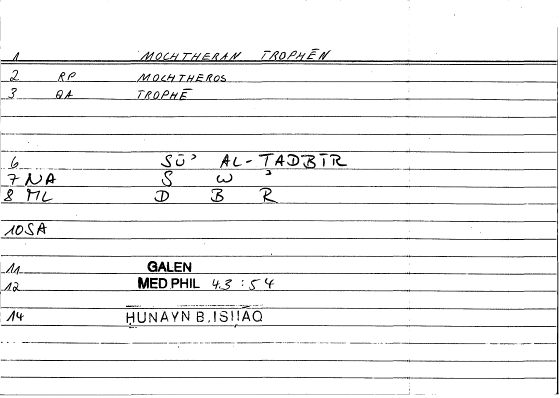 1 MOCHTHERAN TROPHĒN
2 RP MOCHTHEROS
3 QA TROPHĒ
6 SŪʾ AL-TADBĪR
7 NA S W ʾ
8 ML D B R
10 SA
11 GALEN
12 MED PHIL 43:54
14 ḤUNAYN B. ISḤĀQ